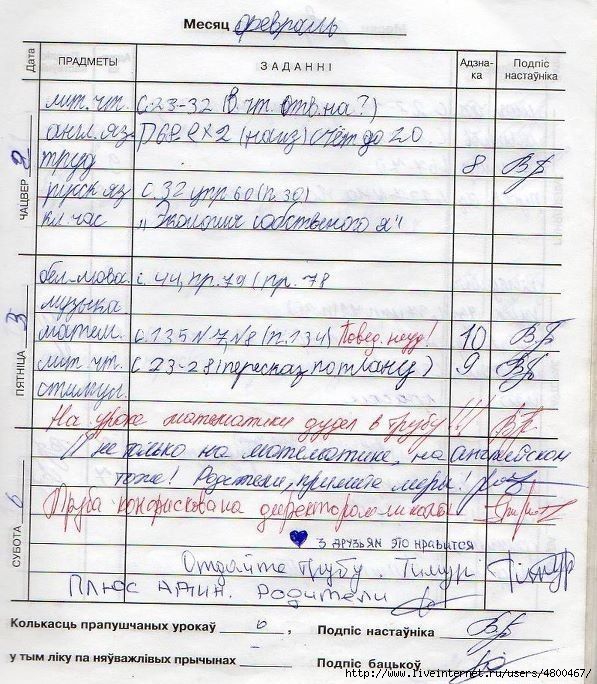 Месяц февраль
Дата ПРАДМЕТЫ ЗАДАННІ Адзнака Подпіс настаўніка
ЧАЦВЕР 2
лит. чт. с. 23-32 (в. чт. отв. на ?)
англ. яз.
труд 8
с. 32 упр. 60 (п. 30)
кл. час
ПЯТНІЦА 3
бел. мова. с. 44, пр. 79 (пр. 78
музыка.
матем. с. 135 N 7 N 8 (п. 134) Повед. неуд! 10
лит. чт. с 23-28 (пересказ по плану) 9
На уроке математики дудел в трубу!!!
СУБОТА 6
И не только на математике, на английском
тоже! Родители, примите меры!
Труба конфискована директором школы!
3 друзьям это нравится
Отдайте трубу. Тимур
Плюс адин. Родители
Колькасць прапушчаных урокаў 0, Подпіс настаўніка
у тым ліку па няўважлівых прычынах — Подпіс бацькоў
http://www.liveinternet.ru/users/4800467/